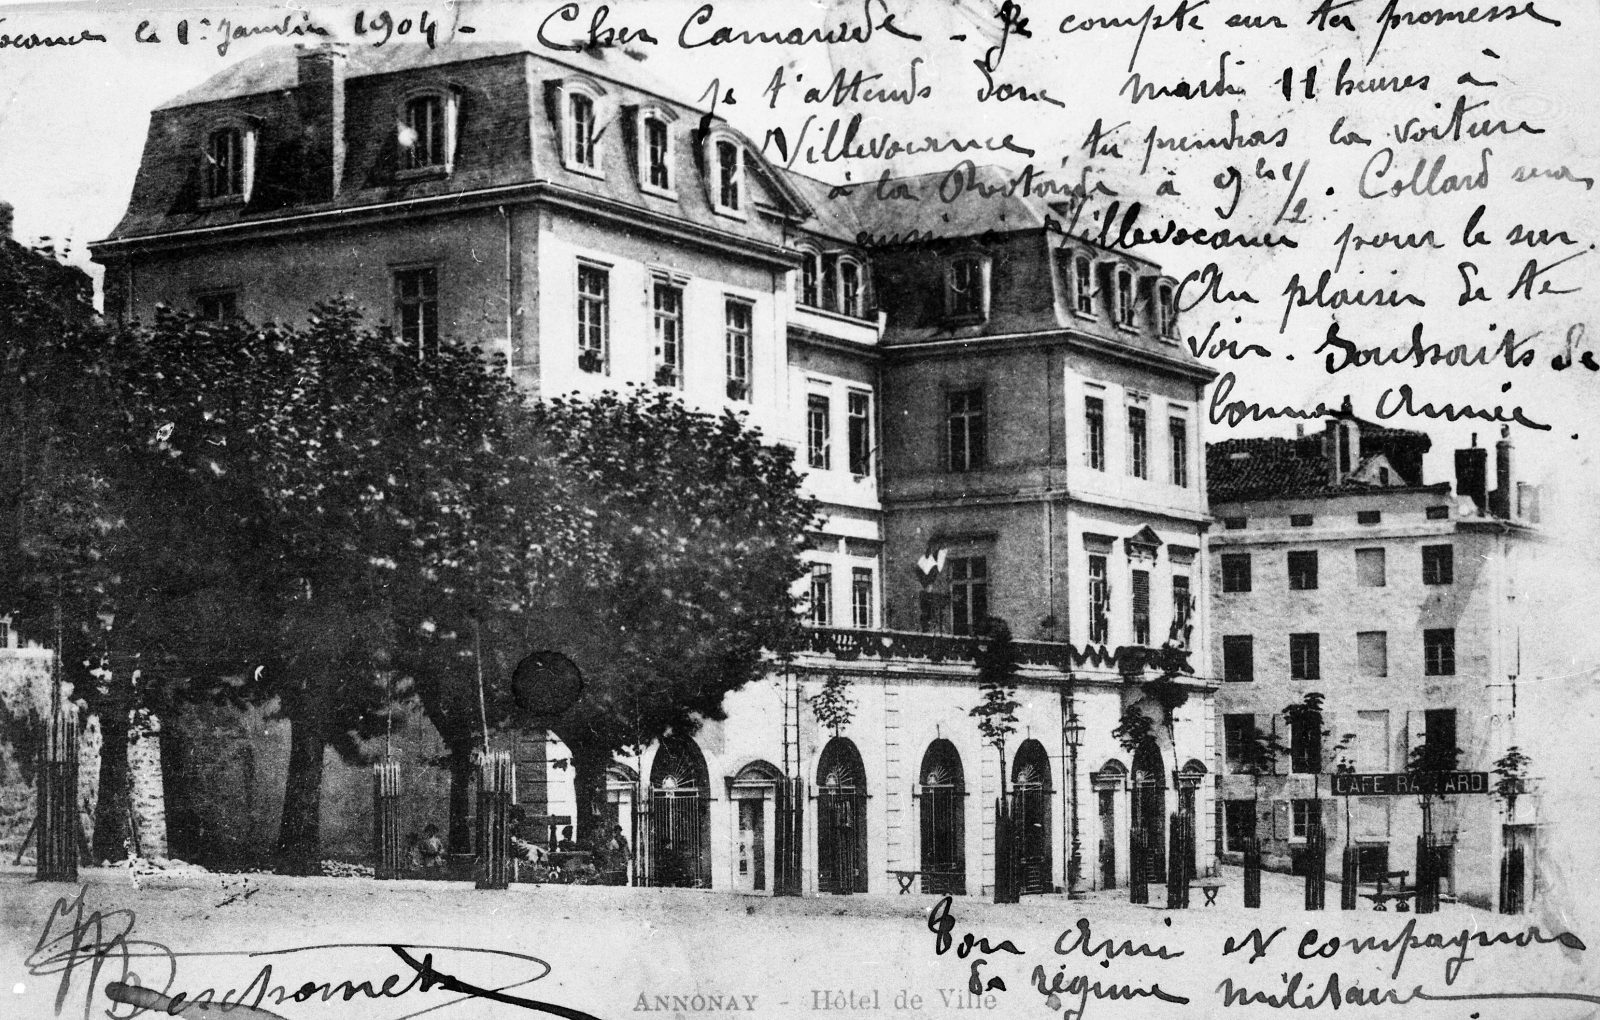 ocance le 1er Janvier 1904 - Cher Camarade - Je compte sur ta promesse
je t'attends donc mardi 11 heures à
Villevocance, tu prendras la voiture
à la Rotonde à 9h 1/2. Collard sera
aussi à Villevocance pour le sur.
Au plaisir de te
voir. Souhaits de
bonne Année.
CAFÉ RA ARD
Ton Ami et compagnon
de régime militaire
Deschomets
ANNONAY - Hôtel de Ville